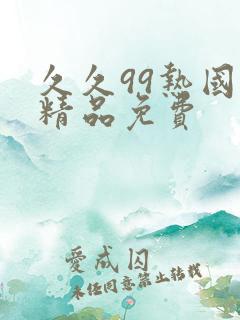 久久99热國
精品免费
愛成囚
未经同意禁止转载